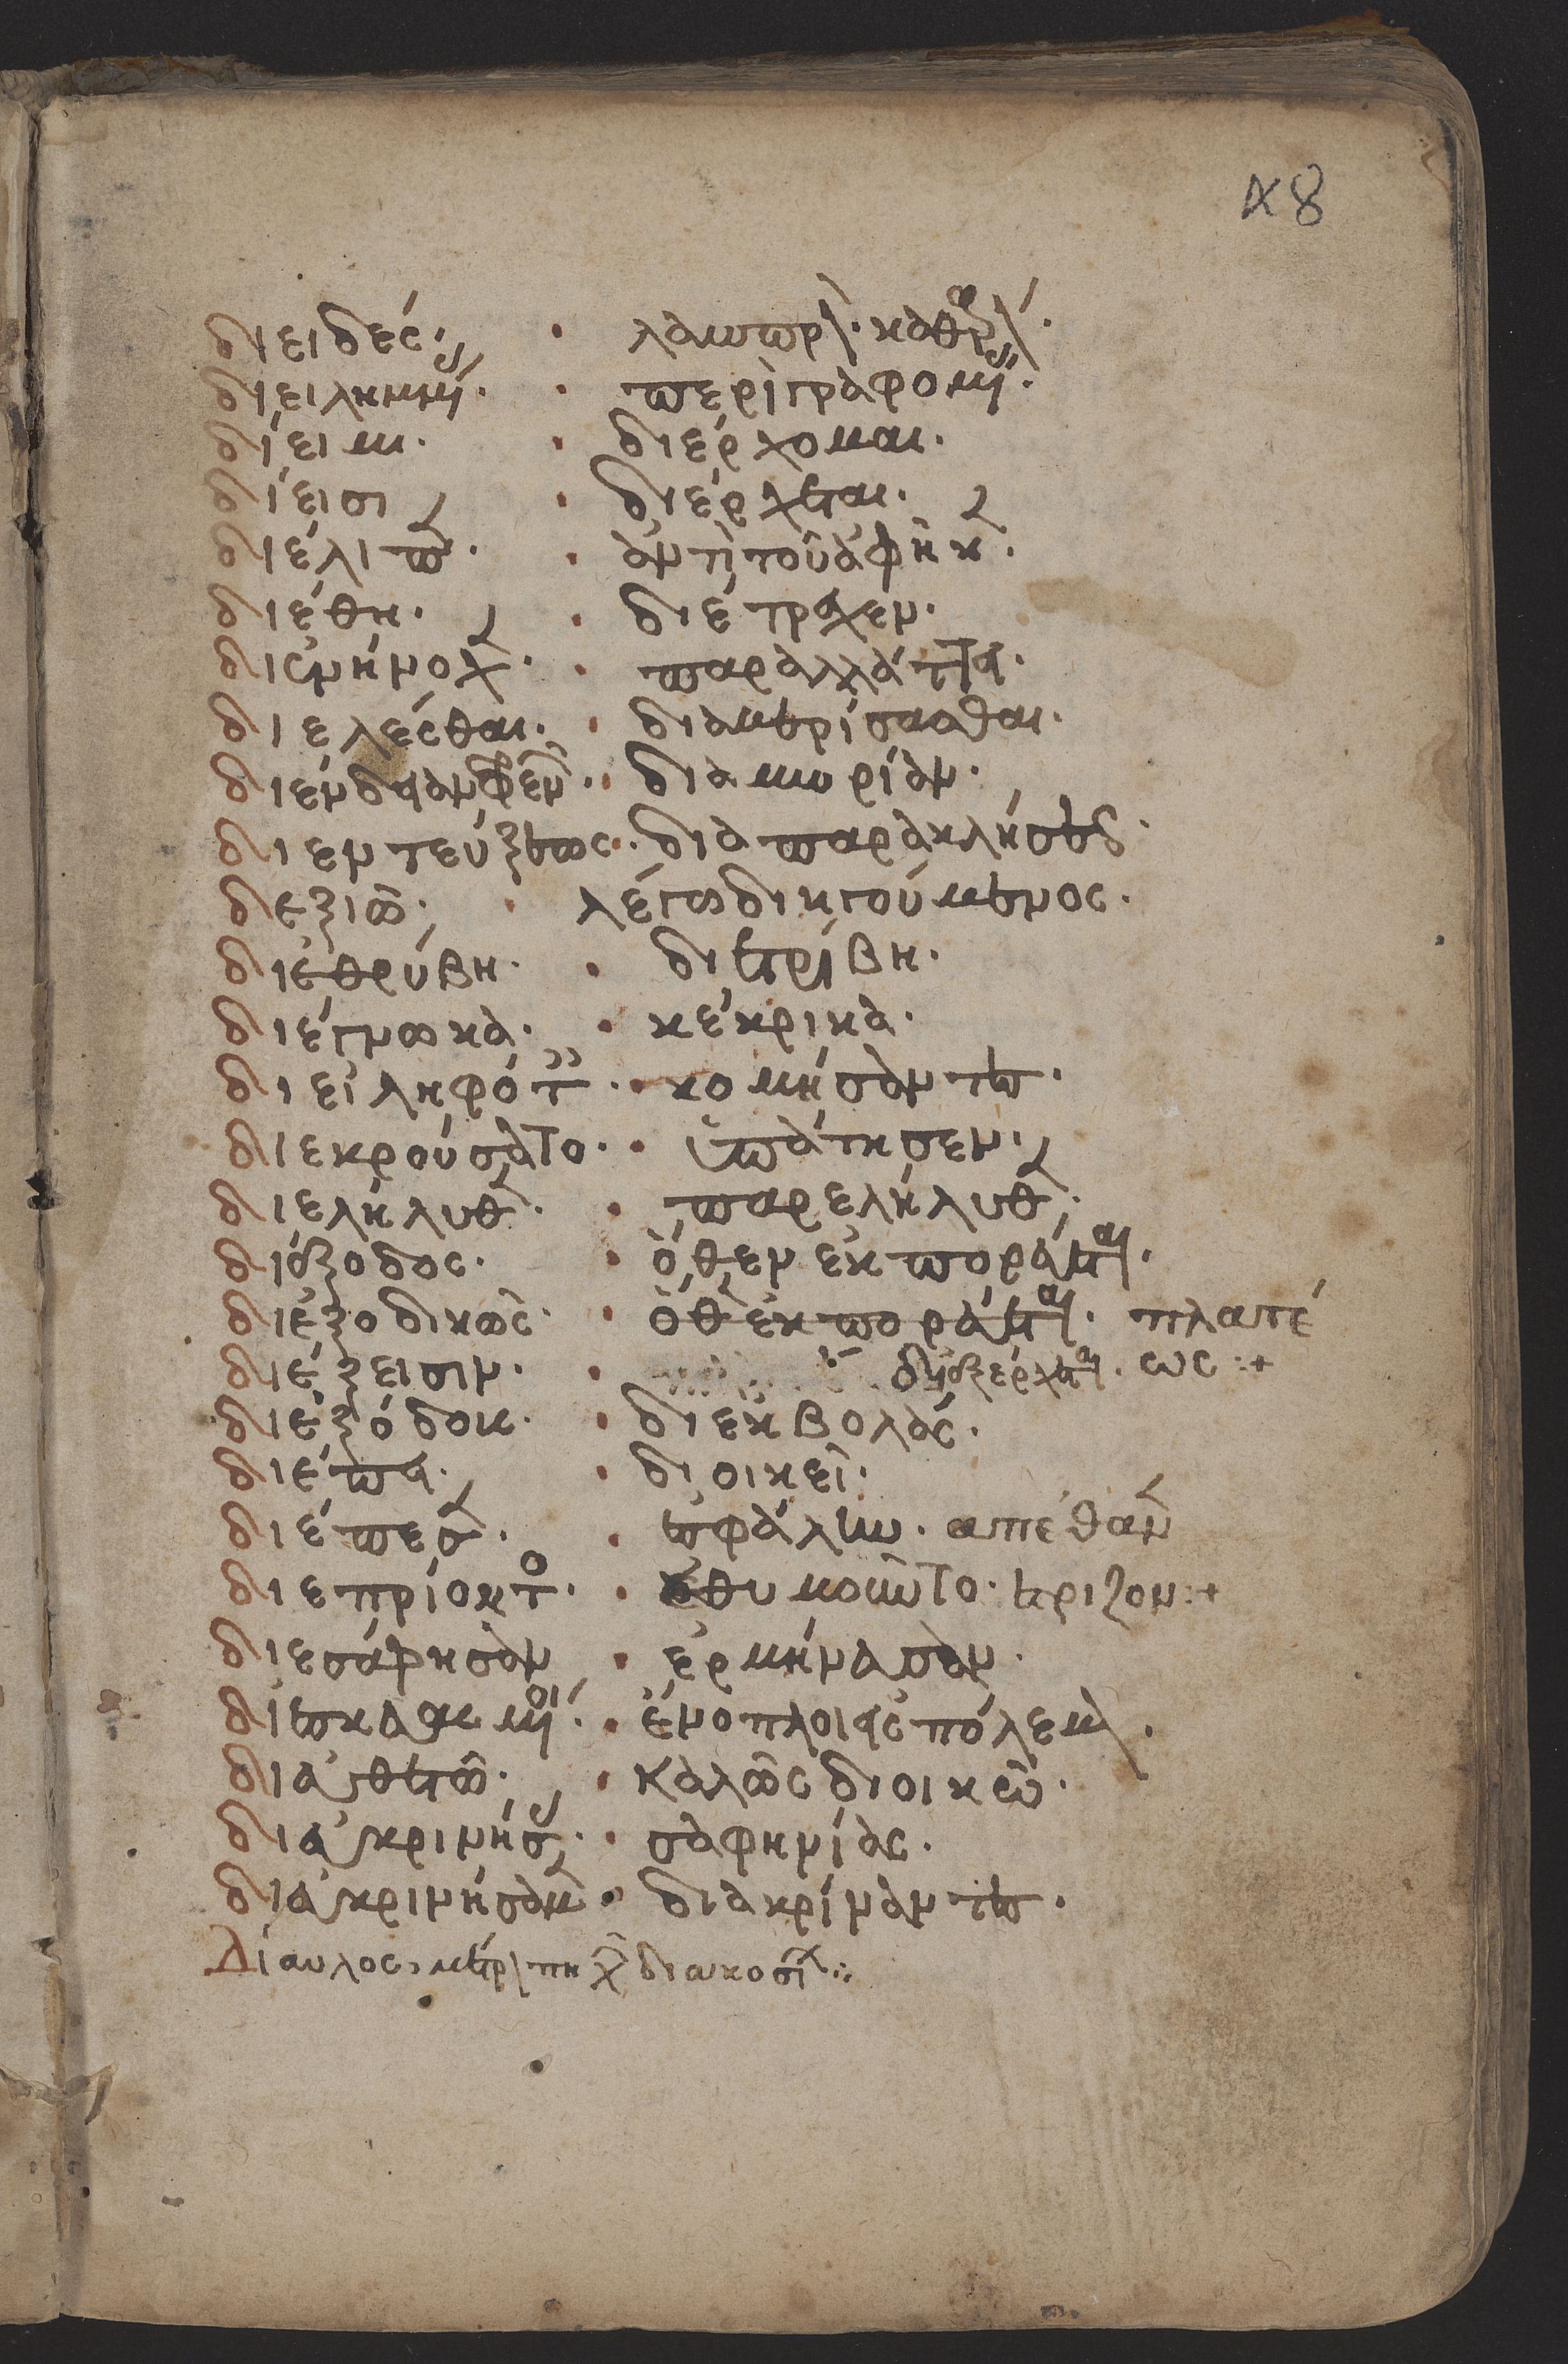 48
διειδές· λαμπρ· καθαρ·
διειλημμ· περιγραφομ·
δίειμι· διέρχομαι·
δίεισι διέρχεται·
διέλιπ· ἀντὶ τοῦ ἀφῆκ·
διέθει· διέτρεχεν·
διενήνοχ· παραλλάττει·
διελέσθαι· διαμερίσασθαι·
διένδειαν φρεν· διὰ μωρίαν·
διεντεύξεως· διὰ παρακλήσεως·
δεξιῶ· λέγω διηγούμενος·
διεθρύβη· διετρίβη·
διέγνωκα· κέκρικα·
διειληφότ· κομήσαντες·
διεκρούσατο· ὑπάτησεν·
διελήλυθ· παρελήλυθ·
διέξοδος· ὅθεν ἐκπορεύεται·
διεξοδικῶς· ὅθ ἐκπορεύεται· πλαπέ
διέξεισιν· διεξέρχεται· ως :+
διεξόδοις· διεκβολάς·
διέπει· διοικεῖ·
διέπεσ· ἐσφάλη· απέθαν
διεπρίοντο· ἐθυμοῦντο· ἐριζον :+
διεσάφησαν ἑρμήνασαν·
διεσκασμ· ἐνοπλοις πόλεμ·
διευθετῶ· καλῶς διοικῶ·
διευκρινήσ· σαφηνίας·
διευκρινήσαν· διακρίναντες·
Δίαυλος, μέτρ πηχ διακοσι :·